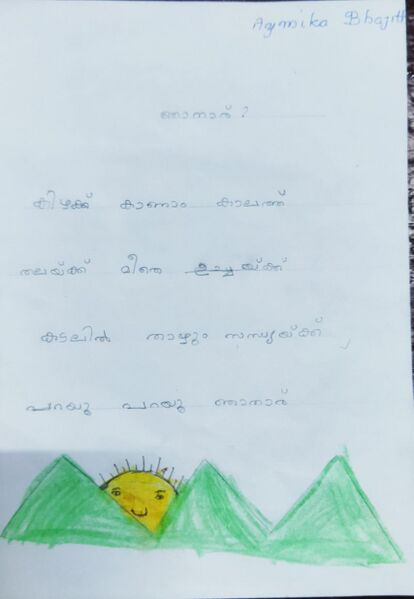 Agmika Bhajith
ഞാനാര് ?
കിഴക്ക് കാണാം കാലത്ത്
തലയ്ക്ക് മീതെ ഉച്ചയ്ക്ക്
കടലിൽ താഴും സന്ധ്യയ്ക്ക്
പറയൂ പറയൂ ഞാനാര്